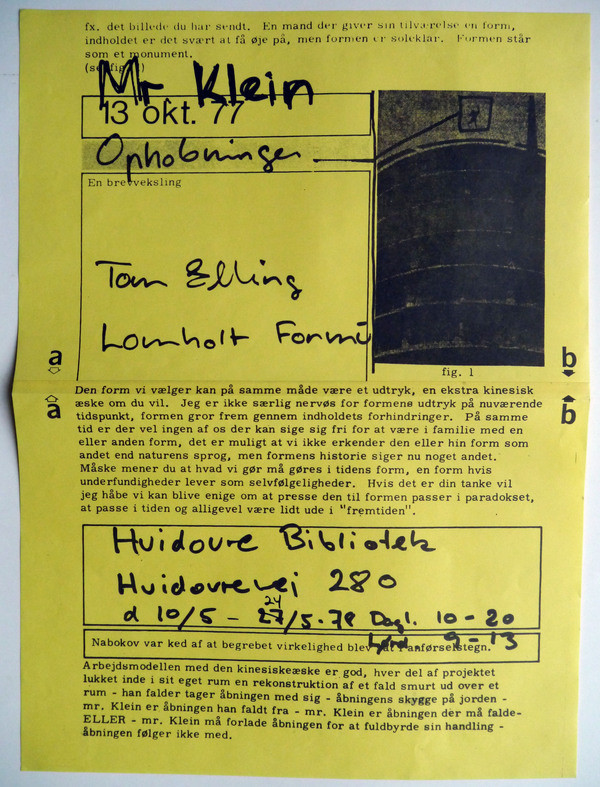 fx. det billede du har sendt. En mand der giver sin tilværelse en form,
indholdet er det svært at få øje på, men formen er soleklar. Formen står
som et monument.
(se fig. 1)
Mr Klein
13 okt. 77
Ophobninger
En brevveksling
Tom Elling
Lomholt Formular
fig. 1
a
b
a
b
Den form vi vælger kan på samme måde være et udtryk, en ekstra kinesisk
æske om du vil. Jeg er ikke særlig nervøs for formens udtryk på nuværende
tidspunkt, formen gror frem gennem indholdets forhindringer. På samme
tid er der vel ingen af os der kan sige sig fri for at være i familie med en
eller anden form, det er muligt at vi ikke erkender den eller hin form som
andet end naturens sprog, men formens historie siger nu noget andet.
Måske mener du at hvad vi gør må gøres i tidens form, en form hvis
underfundigheder lever som selvfølgeligheder. Hvis det er din tanke vil
jeg håbe vi kan blive enige om at presse den til formen passer i paradokset,
at passe i tiden og alligevel være lidt ude i "fremtiden".
Hvidovre Bibliotek
Hvidovrevej 280
d 10/5 - 27/5-78 Dagl. 10-20
24
Lørd. 9-13
Nabokov var ked af at begrebet virkelighed blev sat i anførselstegn.
Arbejdsmodellen med den kinesiskeæske er god, hver del af projektet
lukket inde i sit eget rum en rekonstruktion af et fald smurt ud over et
rum - han falder tager åbningen med sig - åbningens skygge på jorden -
mr. Klein er åbningen han faldt fra - mr. Klein er åbningen der må falde-
ELLER - mr. Klein må forlade åbningen for at fuldbyrde sin handling -
åbningen følger ikke med.